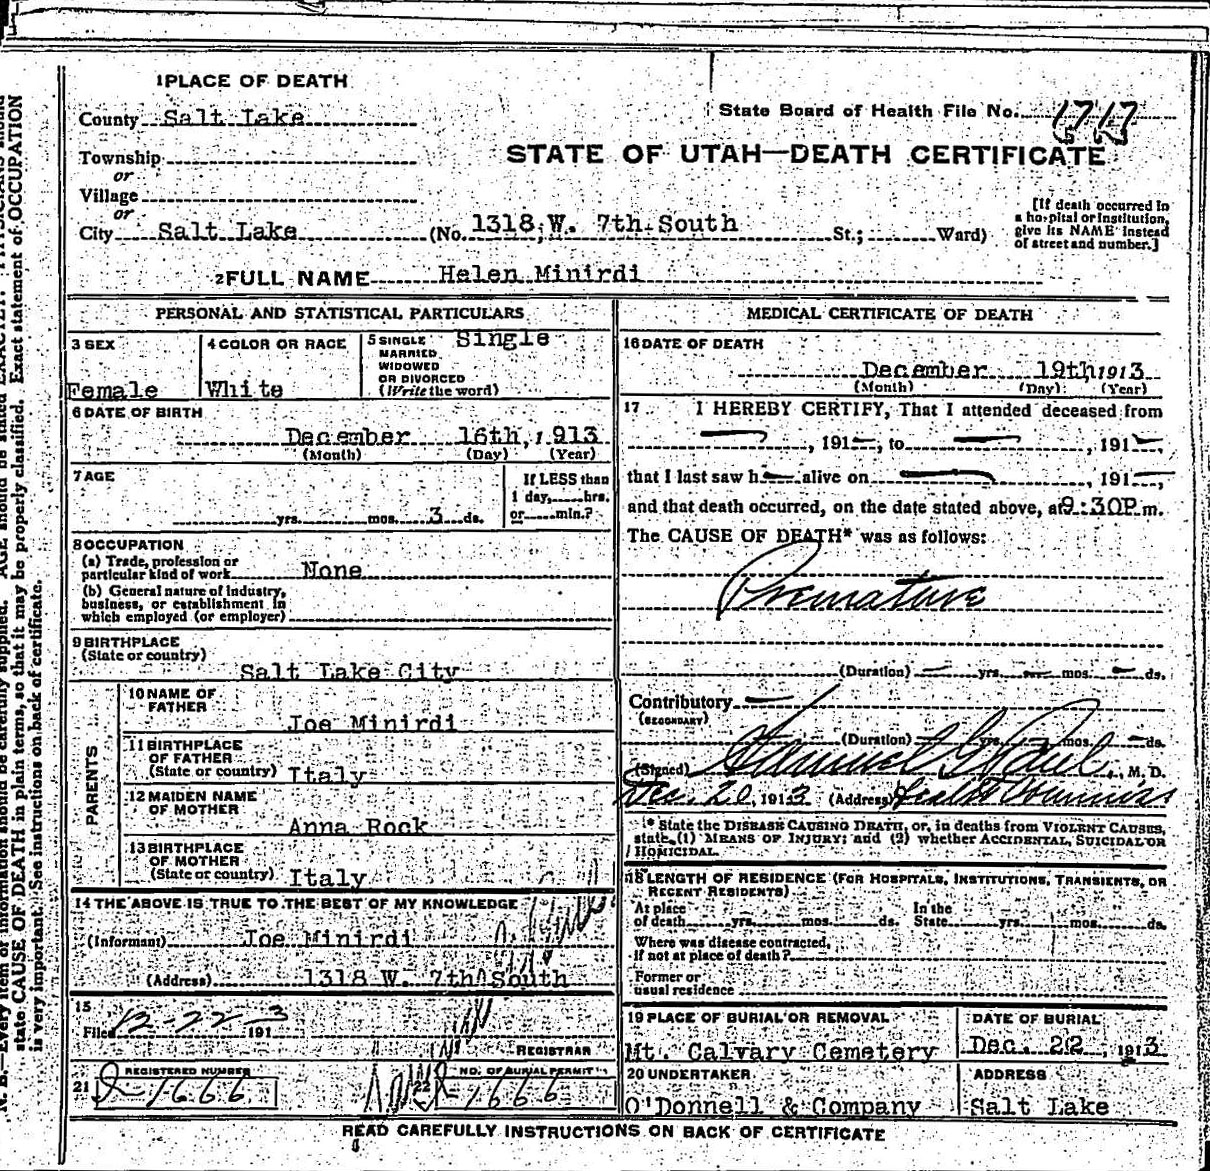 1 PLACE OF DEATH
County Salt Lake
State Board of Health File No. 1717
Township
or
STATE OF UTAH—DEATH CERTIFICATE
Village
or
City Salt Lake (No. 1318 W. 7th South St.; Ward)
[If death occurred in
a hospital or institution,
give its NAME instead
of street and number.]
2 FULL NAME Helen Minirdi
PERSONAL AND STATISTICAL PARTICULARS
3 SEX
Female
4 COLOR OR RACE
White
5 SINGLE
MARRIED
WIDOWED
OR DIVORCED
(Write the word)
Single
6 DATE OF BIRTH
December 16th, 1913
(Month) (Day) (Year)
7 AGE
yrs. mos. 3 ds.
If LESS than
1 day, hrs.
or min.?
8 OCCUPATION
(a) Trade, profession or
particular kind of work None
(b) General nature of industry,
business, or establishment in
which employed (or employer)
9 BIRTHPLACE
(State or country)
Salt Lake City
PARENTS
10 NAME OF
FATHER
Joe Minirdi
11 BIRTHPLACE
OF FATHER
(State or country) Italy
12 MAIDEN NAME
OF MOTHER
Anna Rock
13 BIRTHPLACE
OF MOTHER
(State or country) Italy
14 THE ABOVE IS TRUE TO THE BEST OF MY KNOWLEDGE
(Informant) Joe Minirdi
(Address) 1318 W. 7th South
15
Filed 12-22 1913
REGISTRAR
21 REGISTERED NUMBER
1666
22 NO. OF BURIAL PERMIT
1666
MEDICAL CERTIFICATE OF DEATH
16 DATE OF DEATH
December 19th 1913
(Month) (Day) (Year)
17 I HEREBY CERTIFY, That I attended deceased from
—, 191—, to —, 191—,
that I last saw h— alive on —, 191—,
and that death occurred, on the date stated above, at 9:30P m.
The CAUSE OF DEATH* was as follows:
Premature
(Duration) — yrs. — mos. — ds.
Contributory —
(SECONDARY)
(Duration) — yrs. — mos. — ds.
(Signed) Samuel G. Paul, M. D.
Dec. 20, 1913 (Address) Health Commiss
* State the DISEASE CAUSING DEATH, or, in deaths from VIOLENT CAUSES,
state (1) MEANS OF INJURY; and (2) whether ACCIDENTAL, SUICIDAL OR
HOMICIDAL
18 LENGTH OF RESIDENCE (FOR HOSPITALS, INSTITUTIONS, TRANSIENTS, OR
RECENT RESIDENTS)
At place
of death yrs. mos. ds.
In the
State yrs. mos. ds.
Where was disease contracted,
if not at place of death?
Former or
usual residence
19 PLACE OF BURIAL OR REMOVAL
Mt. Calvary Cemetery
DATE OF BURIAL
Dec. 22, 1913
20 UNDERTAKER
O'Donnell & Company
ADDRESS
Salt Lake
READ CAREFULLY INSTRUCTIONS ON BACK OF CERTIFICATE
N. B.—Every item of information should be carefully supplied. AGE should be stated EXACTLY. PHYSICIANS should
state CAUSE OF DEATH in plain terms, so that it may be properly classified. Exact statement of OCCUPATION
is very important. See instructions on back of certificate.